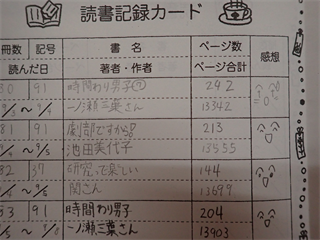 読書記録カード
冊数 記号 書名 ページ数 感想
読んだ日 著者・作者 ページ合計
80 91 時間わり男子⑦ 242
9/3 ~ 9/4 一ノ瀬三葉さん 13342
81 91 劇部ですから! 213
9/4 ~ 9/5 池田美代子 13555
82 37 研究って楽しい 144
関さん 13699
83 91 時間わり男子 204
9/5 ~ 9/6 一ノ瀬三葉さん 13903